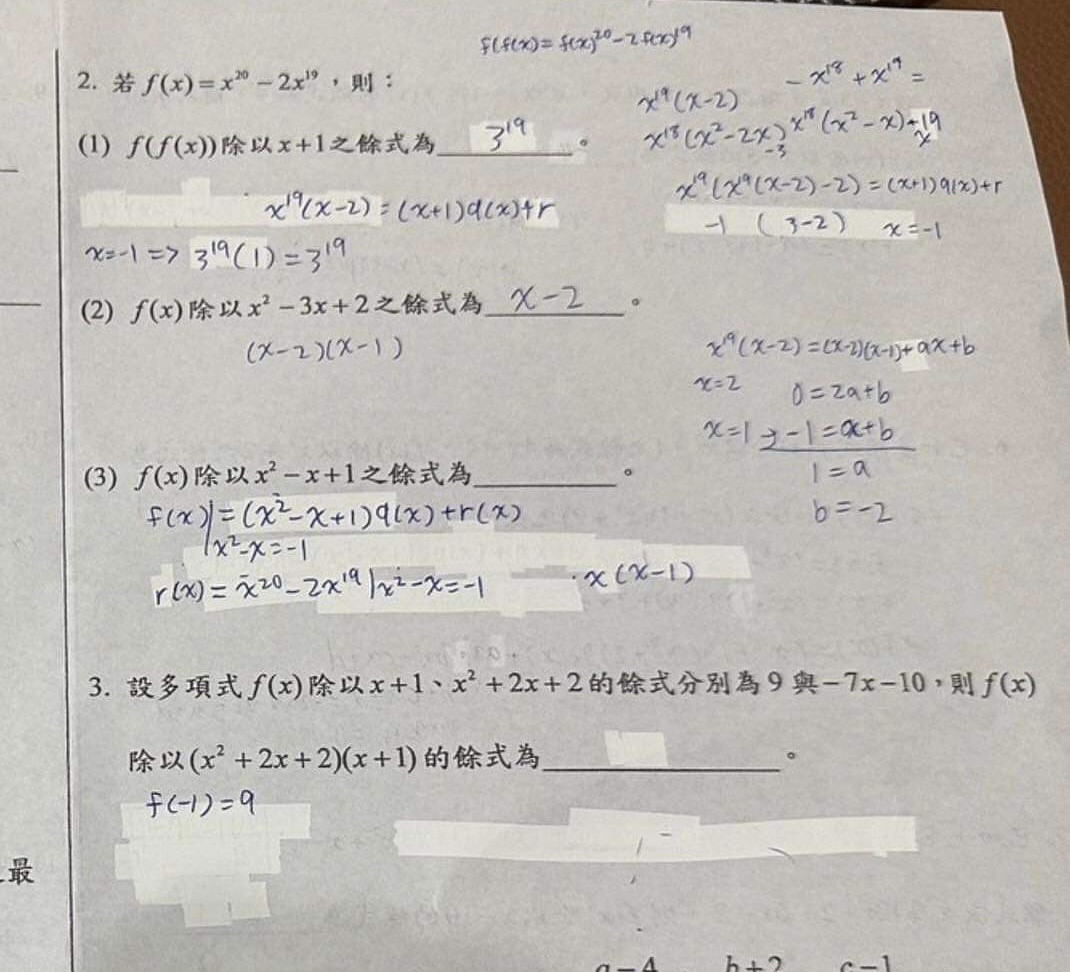 f(f(x))=f(x)²⁰-2f(x)¹⁹
2. 若 f(x)=x²⁰-2x¹⁹，則：
-x¹⁸+x¹⁹=
x¹⁹(x-2)
x¹⁸(x²-2x) x¹⁸(x²-x)
-3
(1) f(f(x))除以x+1之餘式為 3¹⁹ 。
x¹⁹(x¹⁹(x-2)-2)=(x+1)q(x)+r
x¹⁹(x-2)=(x+1)q(x)+r
-1 (3-2) x=-1
x=-1 => 3¹⁹(1)=3¹⁹
(2) f(x)除以x²-3x+2之餘式為 x-2 。
(x-2)(x-1)
x¹⁹(x-2)=(x-2)(x-1)+ax+b
x=2 0=2a+b
x=1 -1=a+b
1=a
b=-2
(3) f(x)除以x²-x+1之餘式為 。
f(x)|=(x²-x+1)q(x)+r(x)
|x²-x=-1
r(x)=x²⁰-2x¹⁹|x²-x=-1
x(x-1)
3. 設多項式f(x)除以x+1、x²+2x+2的餘式分別為9與-7x-10，則f(x)
除以(x²+2x+2)(x+1)的餘式為 。
f(-1)=9
最
a-4 b+2 c-1